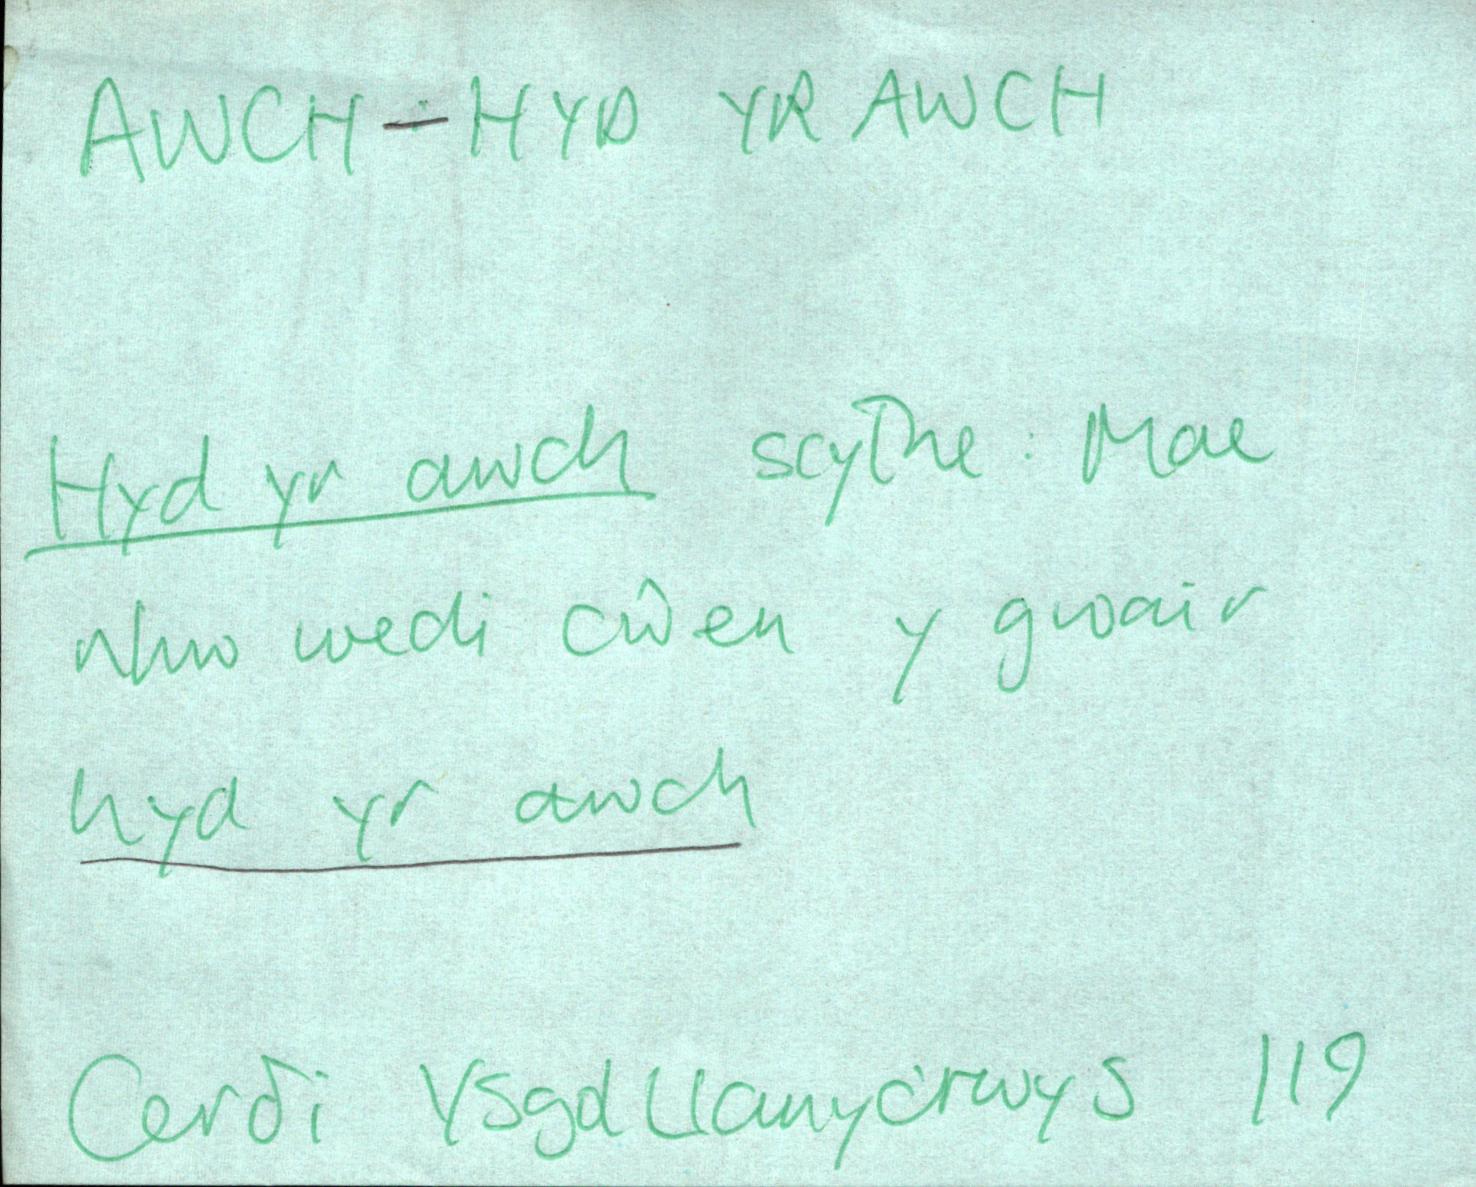 AWCH – HYD YR AWCH
Hyd yr awch scythe: Mae
nhw wedi cŵen y gwair
hyd yr awch
Cerði Ysgd Llanycrwys 119